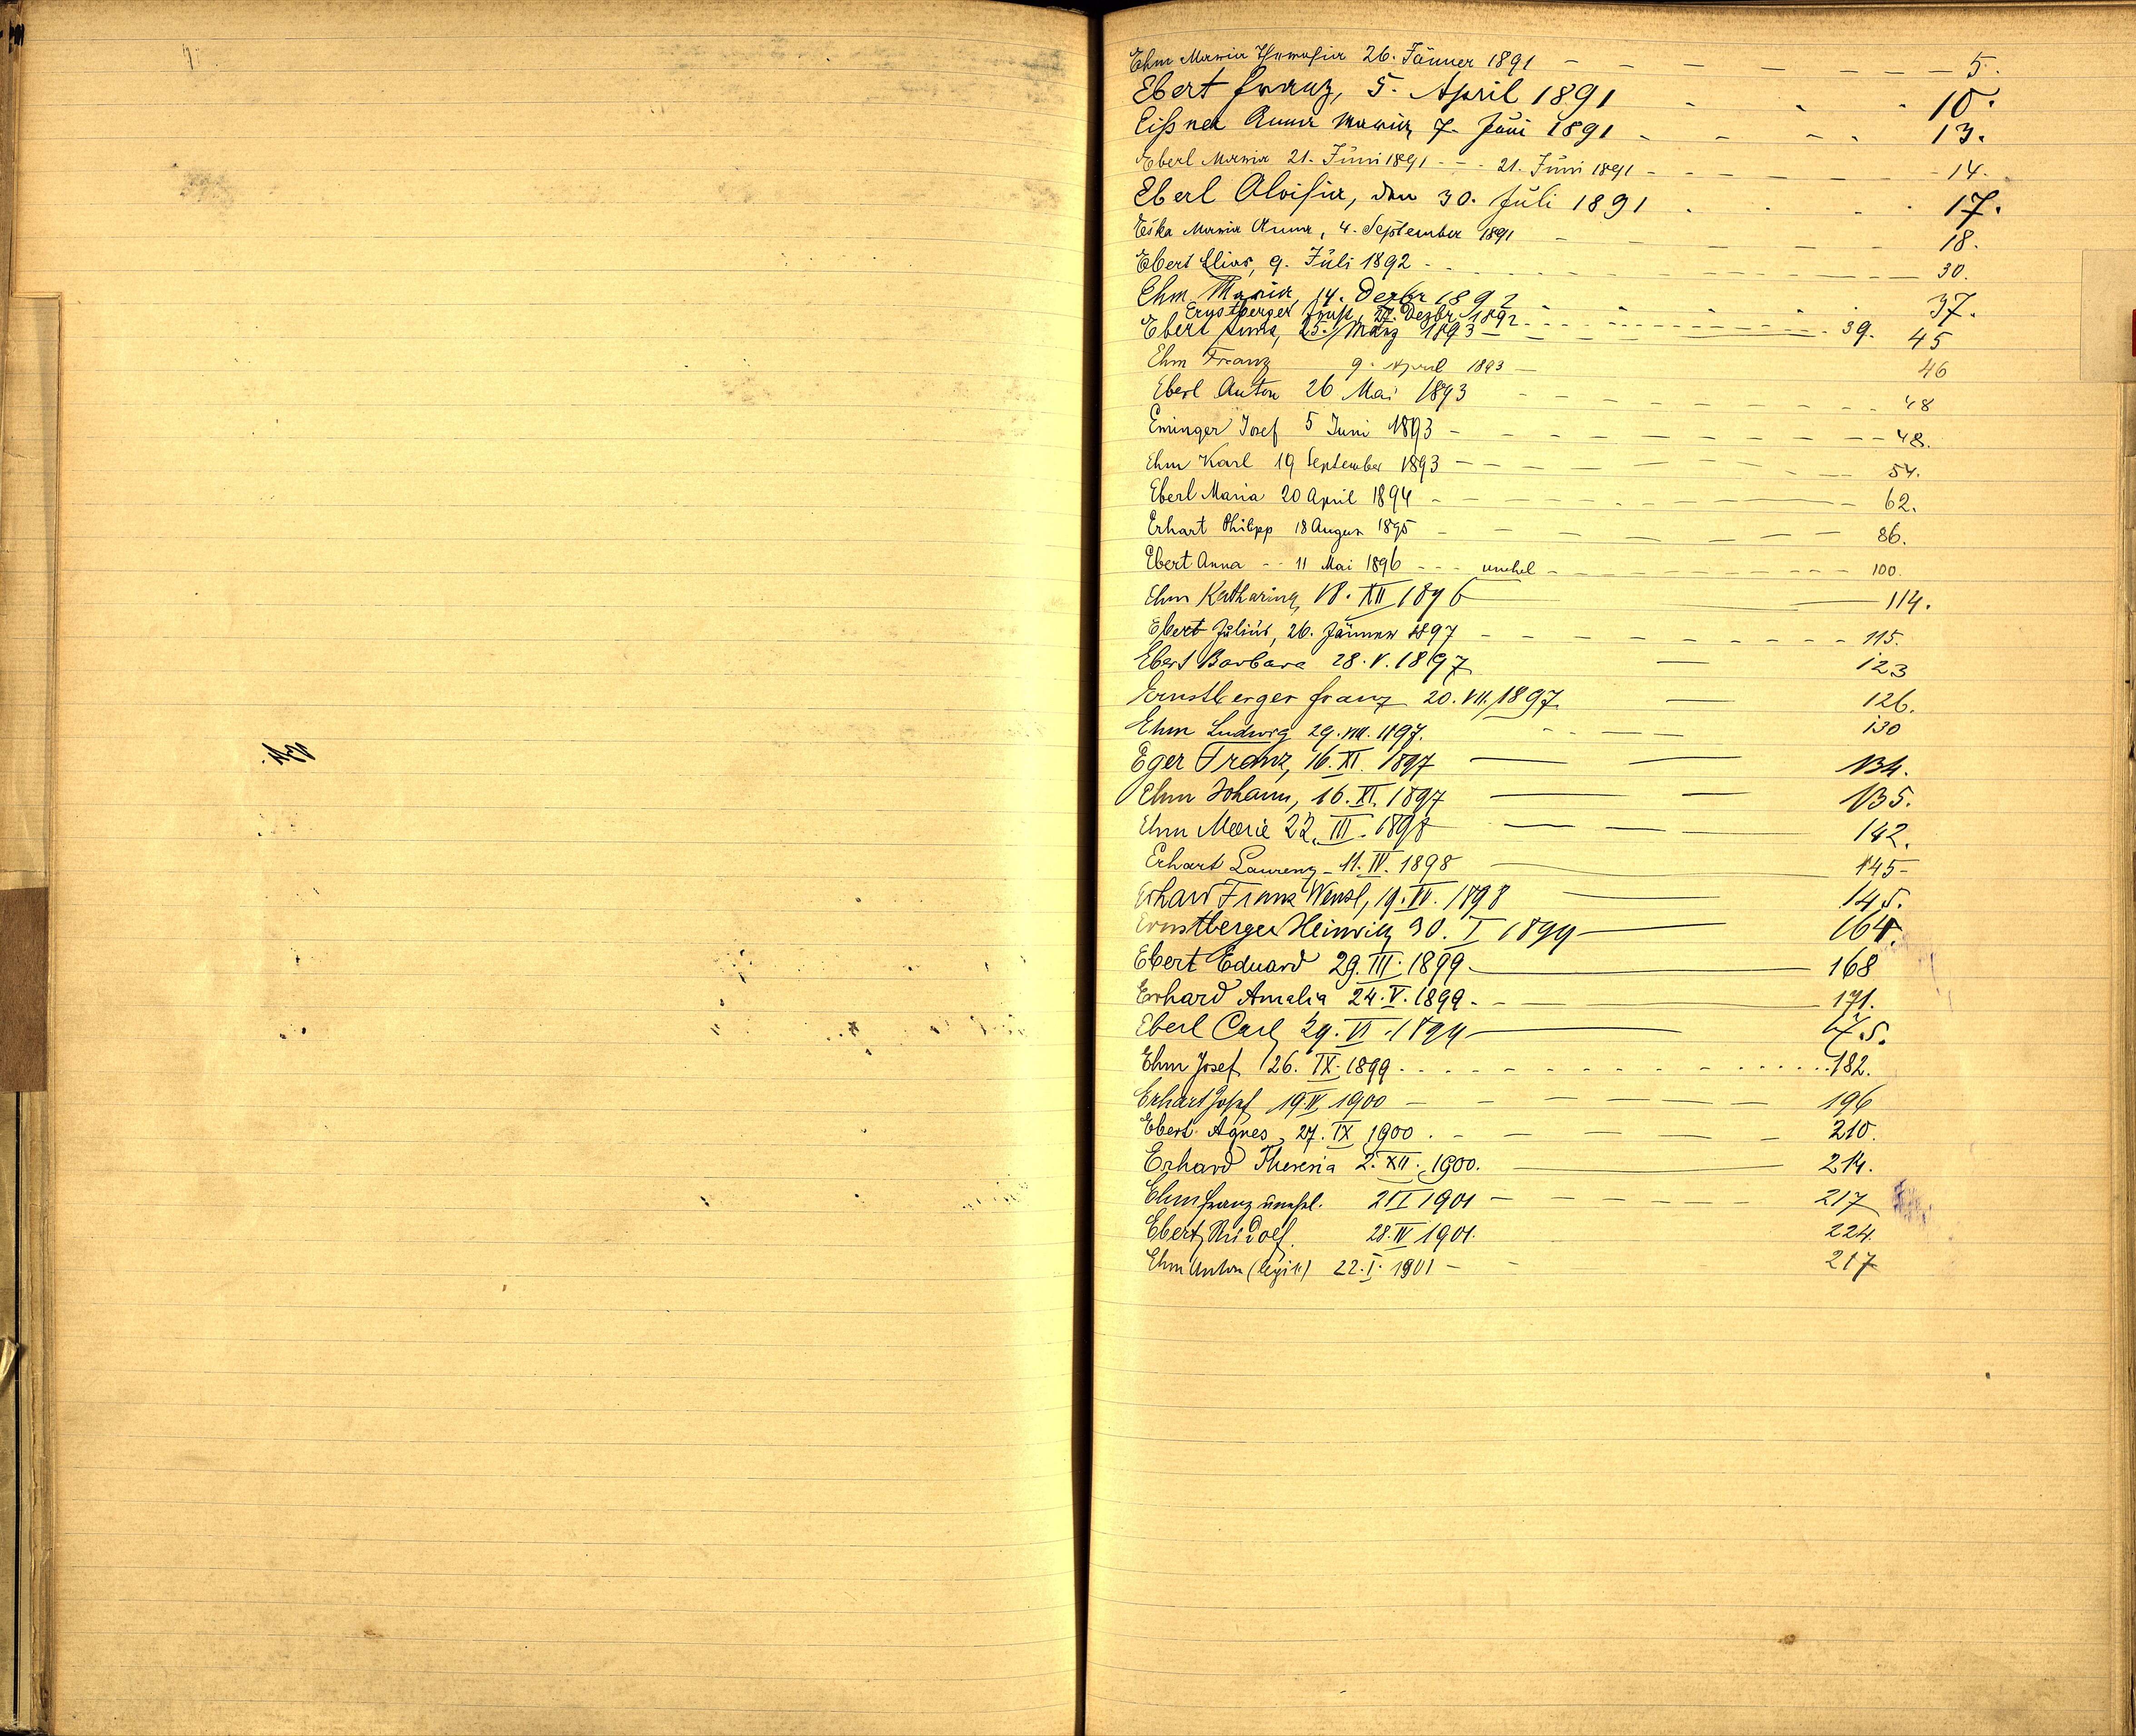 Ehm Maria Theresia 26. Jänner 1891 - - - - - - - 5.
Ebert Franz, 5. April 1891 - - - 10.
Eißner Anna Maria 7. Juni 1891 - - - - 13.
Eberl Maria 21. Juni 1891 - - - 21. Juni 1891 - - - - - - 14.
Eberl Aloisia, den 30. Juli 1891 . . . . 17.
Maria Anna, 4. September 1891 - - - - - 18.
Ebert Elias, 9. Juli 1892 - - - - - 30.
Ehm Maria, 14. Dezbr 1892 - - - 37.
Ernstberger 27. Dezbr. 1892 - - - - - 39.
Ebert Anna, 25. März 1893 - - - - 45
Ehm Franz 9. April 1893 - 46
Eberl Anton 26 Mai 1893 - - - - - - - 48
Eminger Josef 5 Juni 1893 - - - - - - - 48.
Ehm Karl 19 September 1893 - - - - - - 54.
Eberl Maria 20 April 1894 - - - - - - 62.
Erhart Philipp 18 August 1895 - - - - - - 86.
Ebert Anna - - 11 Mai 1896 - - - unehel - - - - - - 100.
Ehm Katharina, 18. XII 1896 - - 114.
Ebert Julius, 26. Jänner 1897 - - - - - - - 115.
Ebert Barbara 28. V. 1897 - 123
Ernstberger Franz 20. VII. 1897. - 126.
Ehm Ludwig 29. VIII. 1897. - - - - 130
Eger Franz, 16. XI. 1897 - - 134.
Ehm Johann, 16. XI. 1897 - - 135.
Ehm Marie 22. III. 1898 - - - 142.
Erhart Laurenz - 11. IV. 1898 - 145-
Erhard Franz Wenzl, 19. IV. 1898 - 145.
Ernstberger Heinrich 30. I 1899 - 164.
Ebert Eduard 29. III. 1899 - 168
Erhard Amalia 24. V. 1899. - - 171.
Eberl Carl 29. VI. 1899 - 175.
Ehm Josef 26. IX. 1899 . . . - - - - - . . . 182.
Erhart Josef 19. IV 1900 - - - - - - 196
Ebert Agnes, 27. IX 1900 . - - - - - 210.
Erhard Theresia 2. XII. 1900. - 214.
Ehm Franz unehel. 2 II 1901 - - - - - 217
Ebert Rudolf. 28. IV 1901. 224.
Ehm Anton 22. I. 1901 - - 217